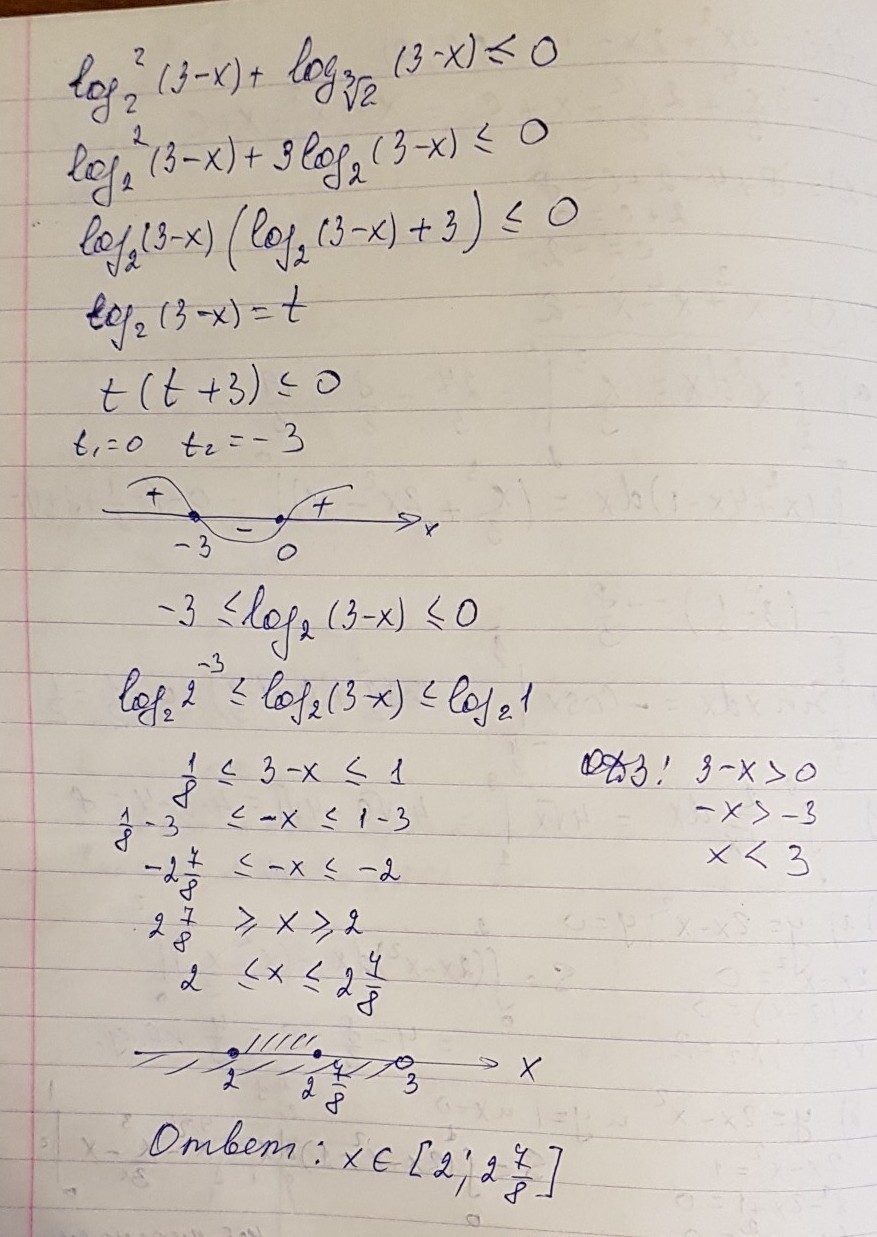 log₂²(3-x) + log_∛2 (3-x) ≤ 0
log₂²(3-x) + 3log₂(3-x) ≤ 0
log₂(3-x)(log₂(3-x)+3) ≤ 0
log₂(3-x) = t
t(t+3) ≤ 0
t₁=0 t₂=-3
+ - + x
-3 0
-3 ≤ log₂(3-x) ≤ 0
log₂2⁻³ ≤ log₂(3-x) ≤ log₂1
1/8 ≤ 3-x ≤ 1 ОДЗ: 3-x>0
1/8-3 ≤ -x ≤ 1-3 -x>-3
-2 7/8 ≤ -x ≤ -2 x<3
2 7/8 ≥ x ≥ 2
2 ≤ x ≤ 2 7/8
2 2 7/8 3 x
Ответ: x ∈ [2; 2 7/8]